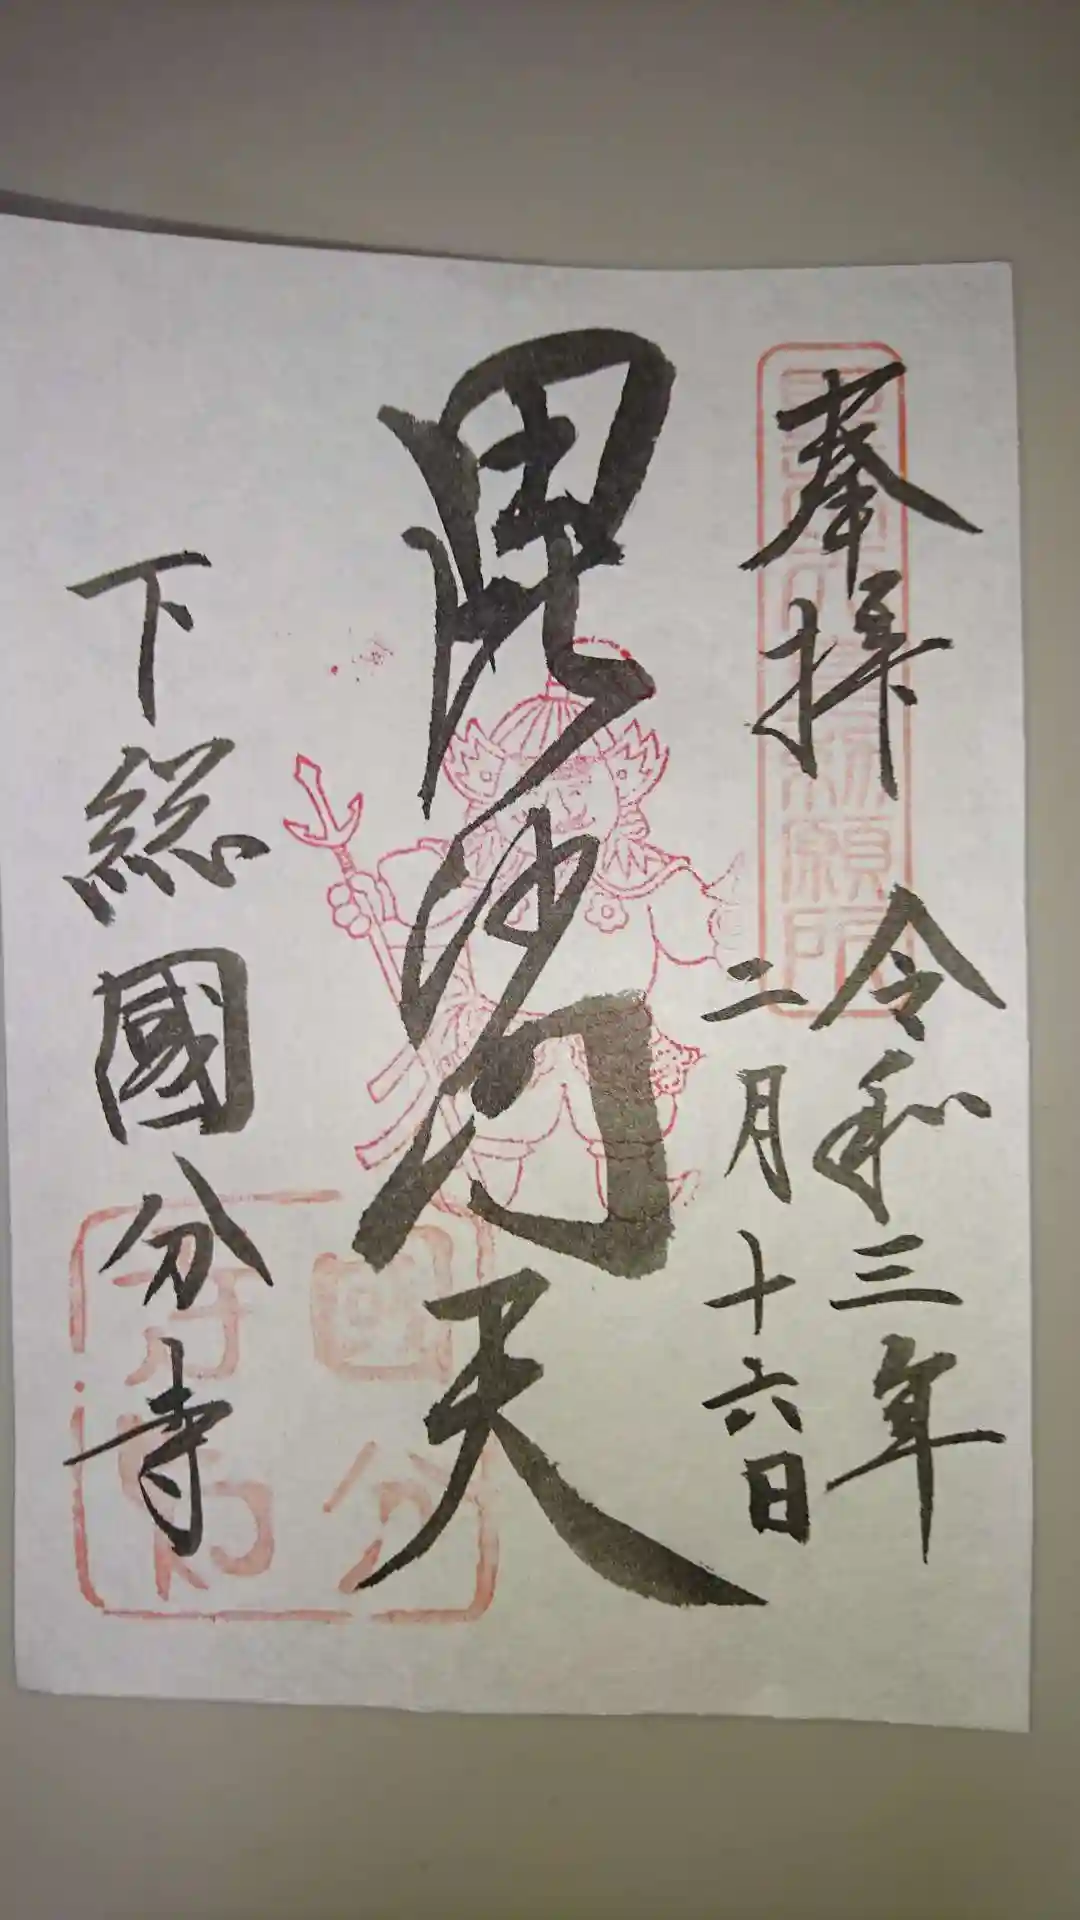 奉拝
令和三年
二月十六日
毘沙門天
下総國分寺
國分
寺印